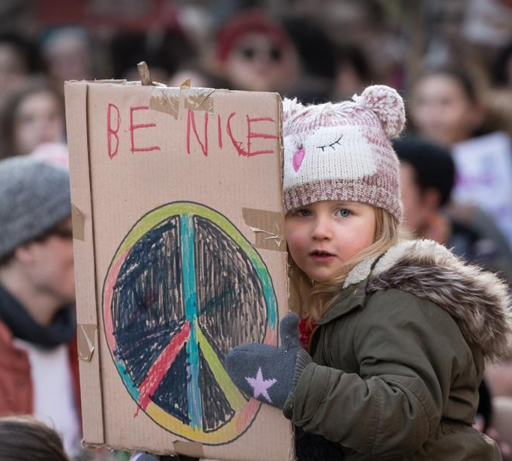 BE NICE